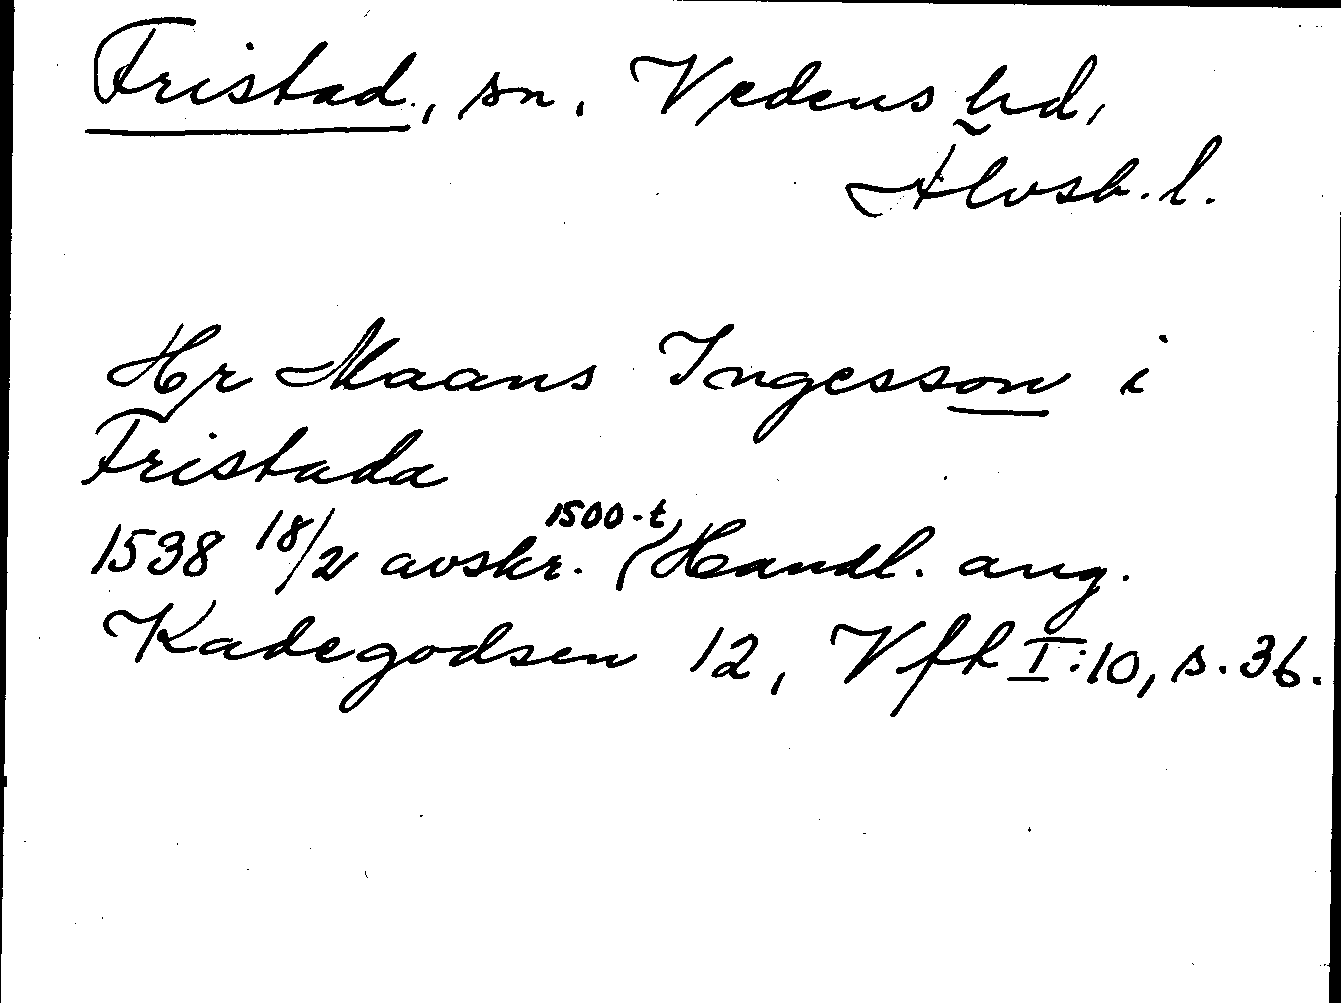 Fristad, sn, Vedens hd,
Älvsb. l.
Hr Maans Ingesson i
Fristada
1538 18/2 avskr. 1500-t (Handl. ang.
Kadegodsen 12, Vfh I:10, s. 36.